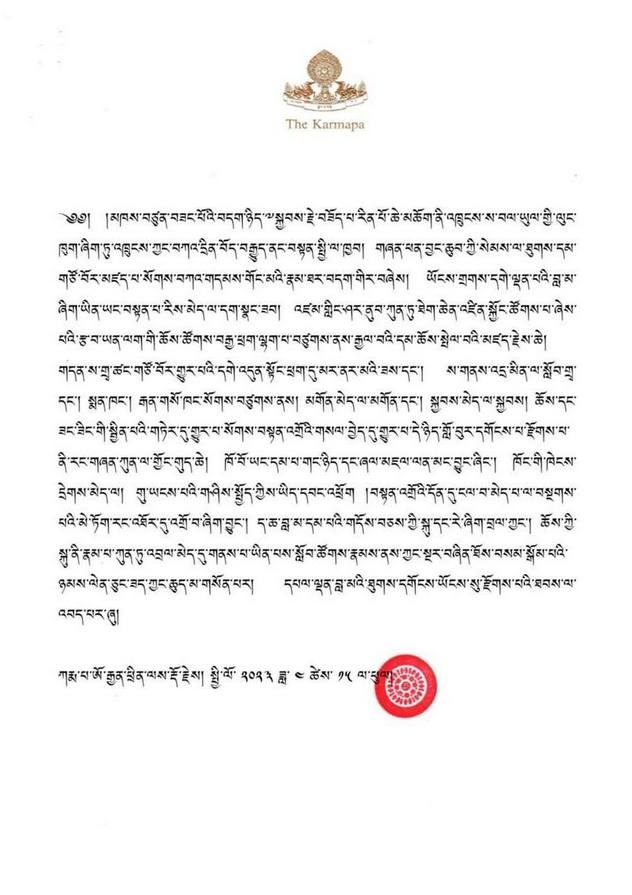 The Karmapa
༄༅། །མཁས་བཙུན་བཟང་པོའི་བདག་ཉིད་༧སྐྱབས་རྗེ་བཟོད་པ་རིན་པོ་ཆེ་མཆོག་ནི་འཁྲུངས་ས་བལ་ཡུལ་གྱི་ལུང་
ཁུག་ཞིག་ཏུ་འཁྲུངས་ཀྱང་བཀའ་དྲིན་བོད་བརྒྱུད་ནང་བསྟན་སྤྱི་ལ་ཁྱབ། གཞན་ཕན་བྱང་ཆུབ་ཀྱི་སེམས་ལ་ཐུགས་དམ་
གཙོ་བོར་མཛད་པ་སོགས་བཀའ་གདམས་གོང་མའི་རྣམ་ཐར་བདག་གིར་བཞེས། ཡོངས་གྲགས་དགེ་ལྡན་པའི་བླ་མ་
ཞིག་ཡིན་ཡང་བསྟན་པ་རིས་མེད་ལ་དག་སྣང་ཟབ། འཛམ་གླིང་ཤར་ནུབ་ཀུན་ཏུ་ཐེག་ཆེན་འཛིན་སྐྱོང་ཚོགས་པ་ཞེས་
པའི་རྩ་བ་ཡན་ལག་གི་ཆོས་ཚོགས་བརྒྱ་ཕྲག་ལྷག་པ་བཙུགས་ནས་རྒྱལ་བའི་དམ་ཆོས་སྤེལ་བའི་མཛད་རྗེས་ཆེ།
གདན་ས་གྲྭ་ཚང་གཙོ་བོར་གྱུར་པའི་དགེ་འདུན་སྟོང་ཕྲག་དུ་མར་ནར་མའི་ཟས་དང་། ས་གནས་འདྲ་མིན་ལ་སློབ་གྲྭ་
དང་། སྨན་ཁང་། རྒན་གསོ་ཁང་སོགས་བཙུགས་ནས། མགོན་མེད་ལ་མགོན་དང་། སྐྱབས་མེད་ལ་སྐྱབས། ཆོས་དང་
ཟང་ཟིང་གི་སྦྱིན་པའི་གཏེར་དུ་གྱུར་པ་སོགས་བསྟན་འགྲོའི་གསལ་བྱེད་དུ་གྱུར་པ་དེ་ཉིད་གློ་བུར་དགོངས་པ་རྫོགས་པ་
ནི་རང་གཞན་ཀུན་ལ་གྱོང་གུད་ཆེ། ཁོ་བོ་ཡང་དམ་པ་གང་ཉིད་དང་ཞལ་མཇལ་ལན་མང་བྱུང་ཞིང་། ཁོང་གི་ཁེངས་
དྲེགས་མེད་ལ། གུ་ཡངས་པའི་གཤིས་སྤྱོད་ཀྱིས་ཡིད་དབང་འཕྲོག །བསྟན་འགྲོའི་དོན་དུ་ངལ་བ་མེད་པ་ལ་བསྔགས་
པའི་མེ་ཏོག་རང་འཐོར་དུ་འགྲོ་བ་ཞིག་བྱུང་། ད་ཆ་བླ་མ་དམ་པའི་གདོས་བཅས་ཀྱི་སྐུ་དང་རེ་ཞིག་བྲལ་ཀྱང་། ཆོས་ཀྱི་
སྐུ་ནི་རྣམ་པ་ཀུན་ཏུ་འབྲལ་མེད་དུ་གནས་པ་ཡིན་པས་སློབ་ཚོགས་རྣམས་ནས་ཀྱང་སྔར་བཞིན་ཐོས་བསམ་སྒོམ་པའི་
ཉམས་ལེན་ཅུང་ཟད་ཀྱང་ཆུད་མ་གསོན་པར། དཔལ་ལྡན་བླ་མའི་ཐུགས་དགོངས་ཡོངས་སུ་རྫོགས་པའི་ཐབས་ལ་
འབད་པར་ཞུ།
ཀརྨ་པ་ཨོ་རྒྱན་ཕྲིན་ལས་རྡོ་རྗེས། སྤྱི་ལོ་ ༢༠༢༣ ཟླ་ ༤ ཚེས་ ༡༥ ལ་ཕུལ།